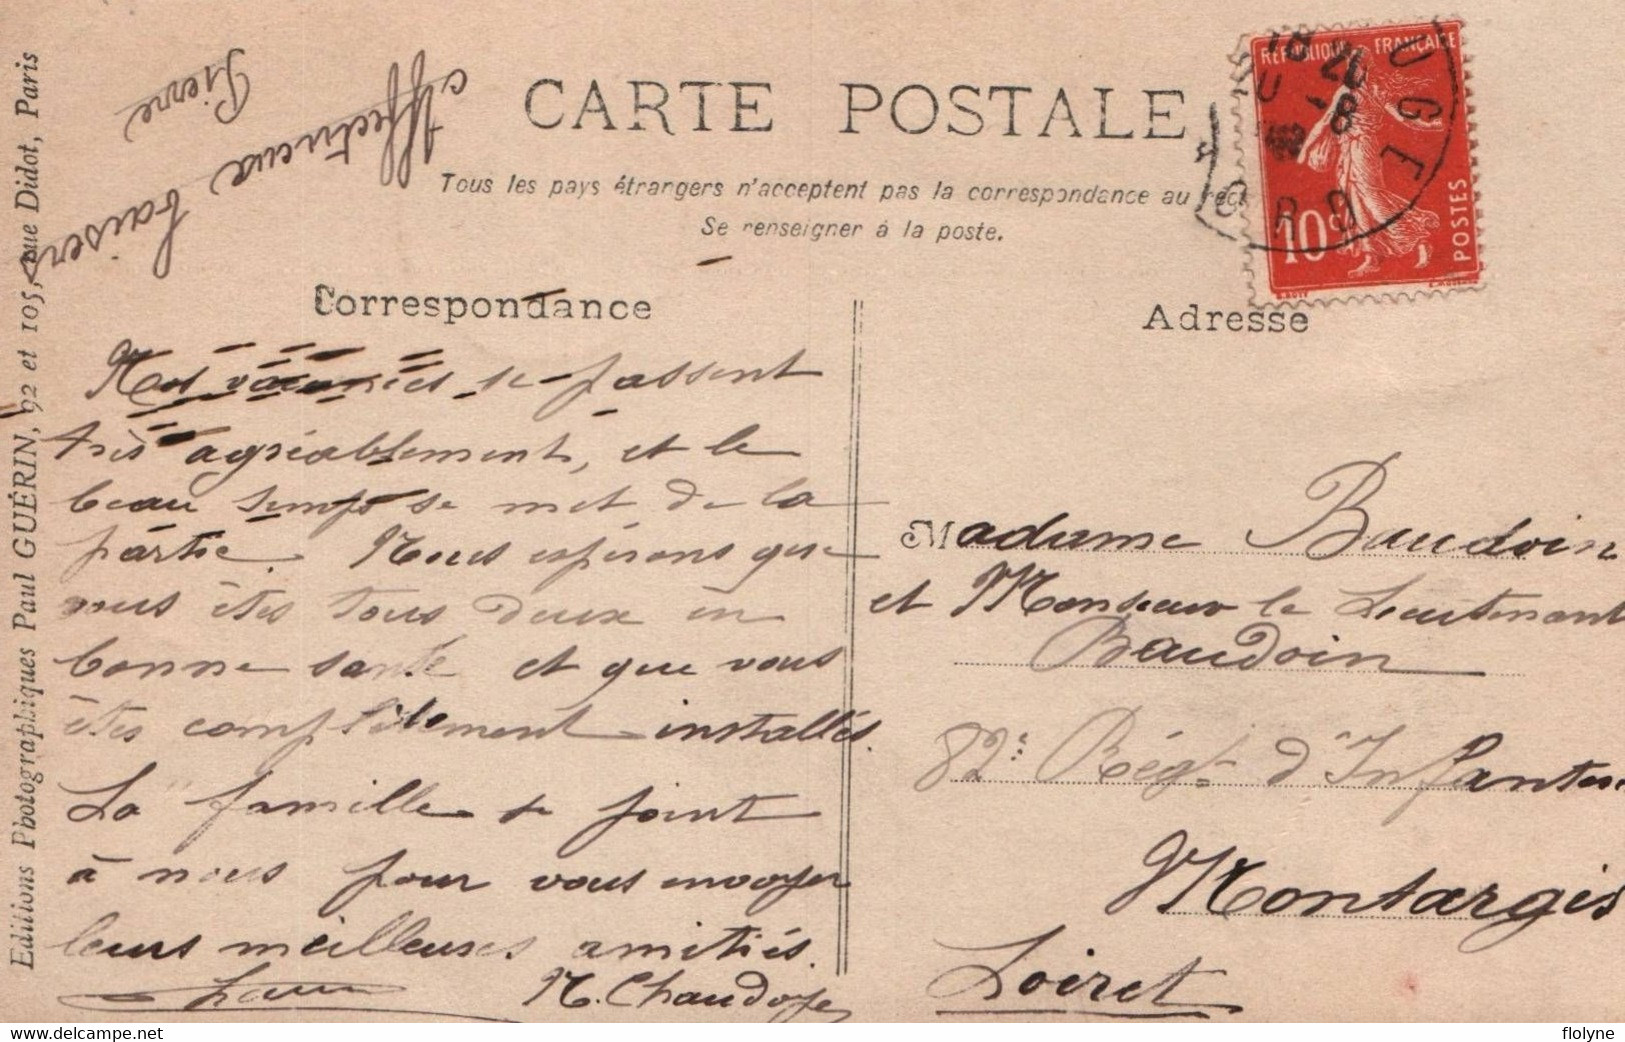 CARTE POSTALE
Tous les pays étrangers n'acceptent pas la correspondance au rec
Se renseigner à la poste.
Correspondance
Adresse
RÉPUBLIQUE FRANÇAISE
10c
POSTES
18 20
8
Editions Photographiques Paul GUÉRIN, 92 et 105, rue Didot, Paris
Affectueux baisers
Pierre
se passent
très agréablement, et le
beau temps se met de la
partie. Nous espérons que
vous êtes tous deux en
bonne santé et que vous
êtes complètement installés.
La famille se joint
à nous pour vous envoyer
leurs meilleures amitiés.
M. Chaudoye
Madame Baudoin
et Monsieur le Lieutenant
Baudoin
82e Régt d'Infanterie
Montargis
Loiret
delcampe.net
flolyne